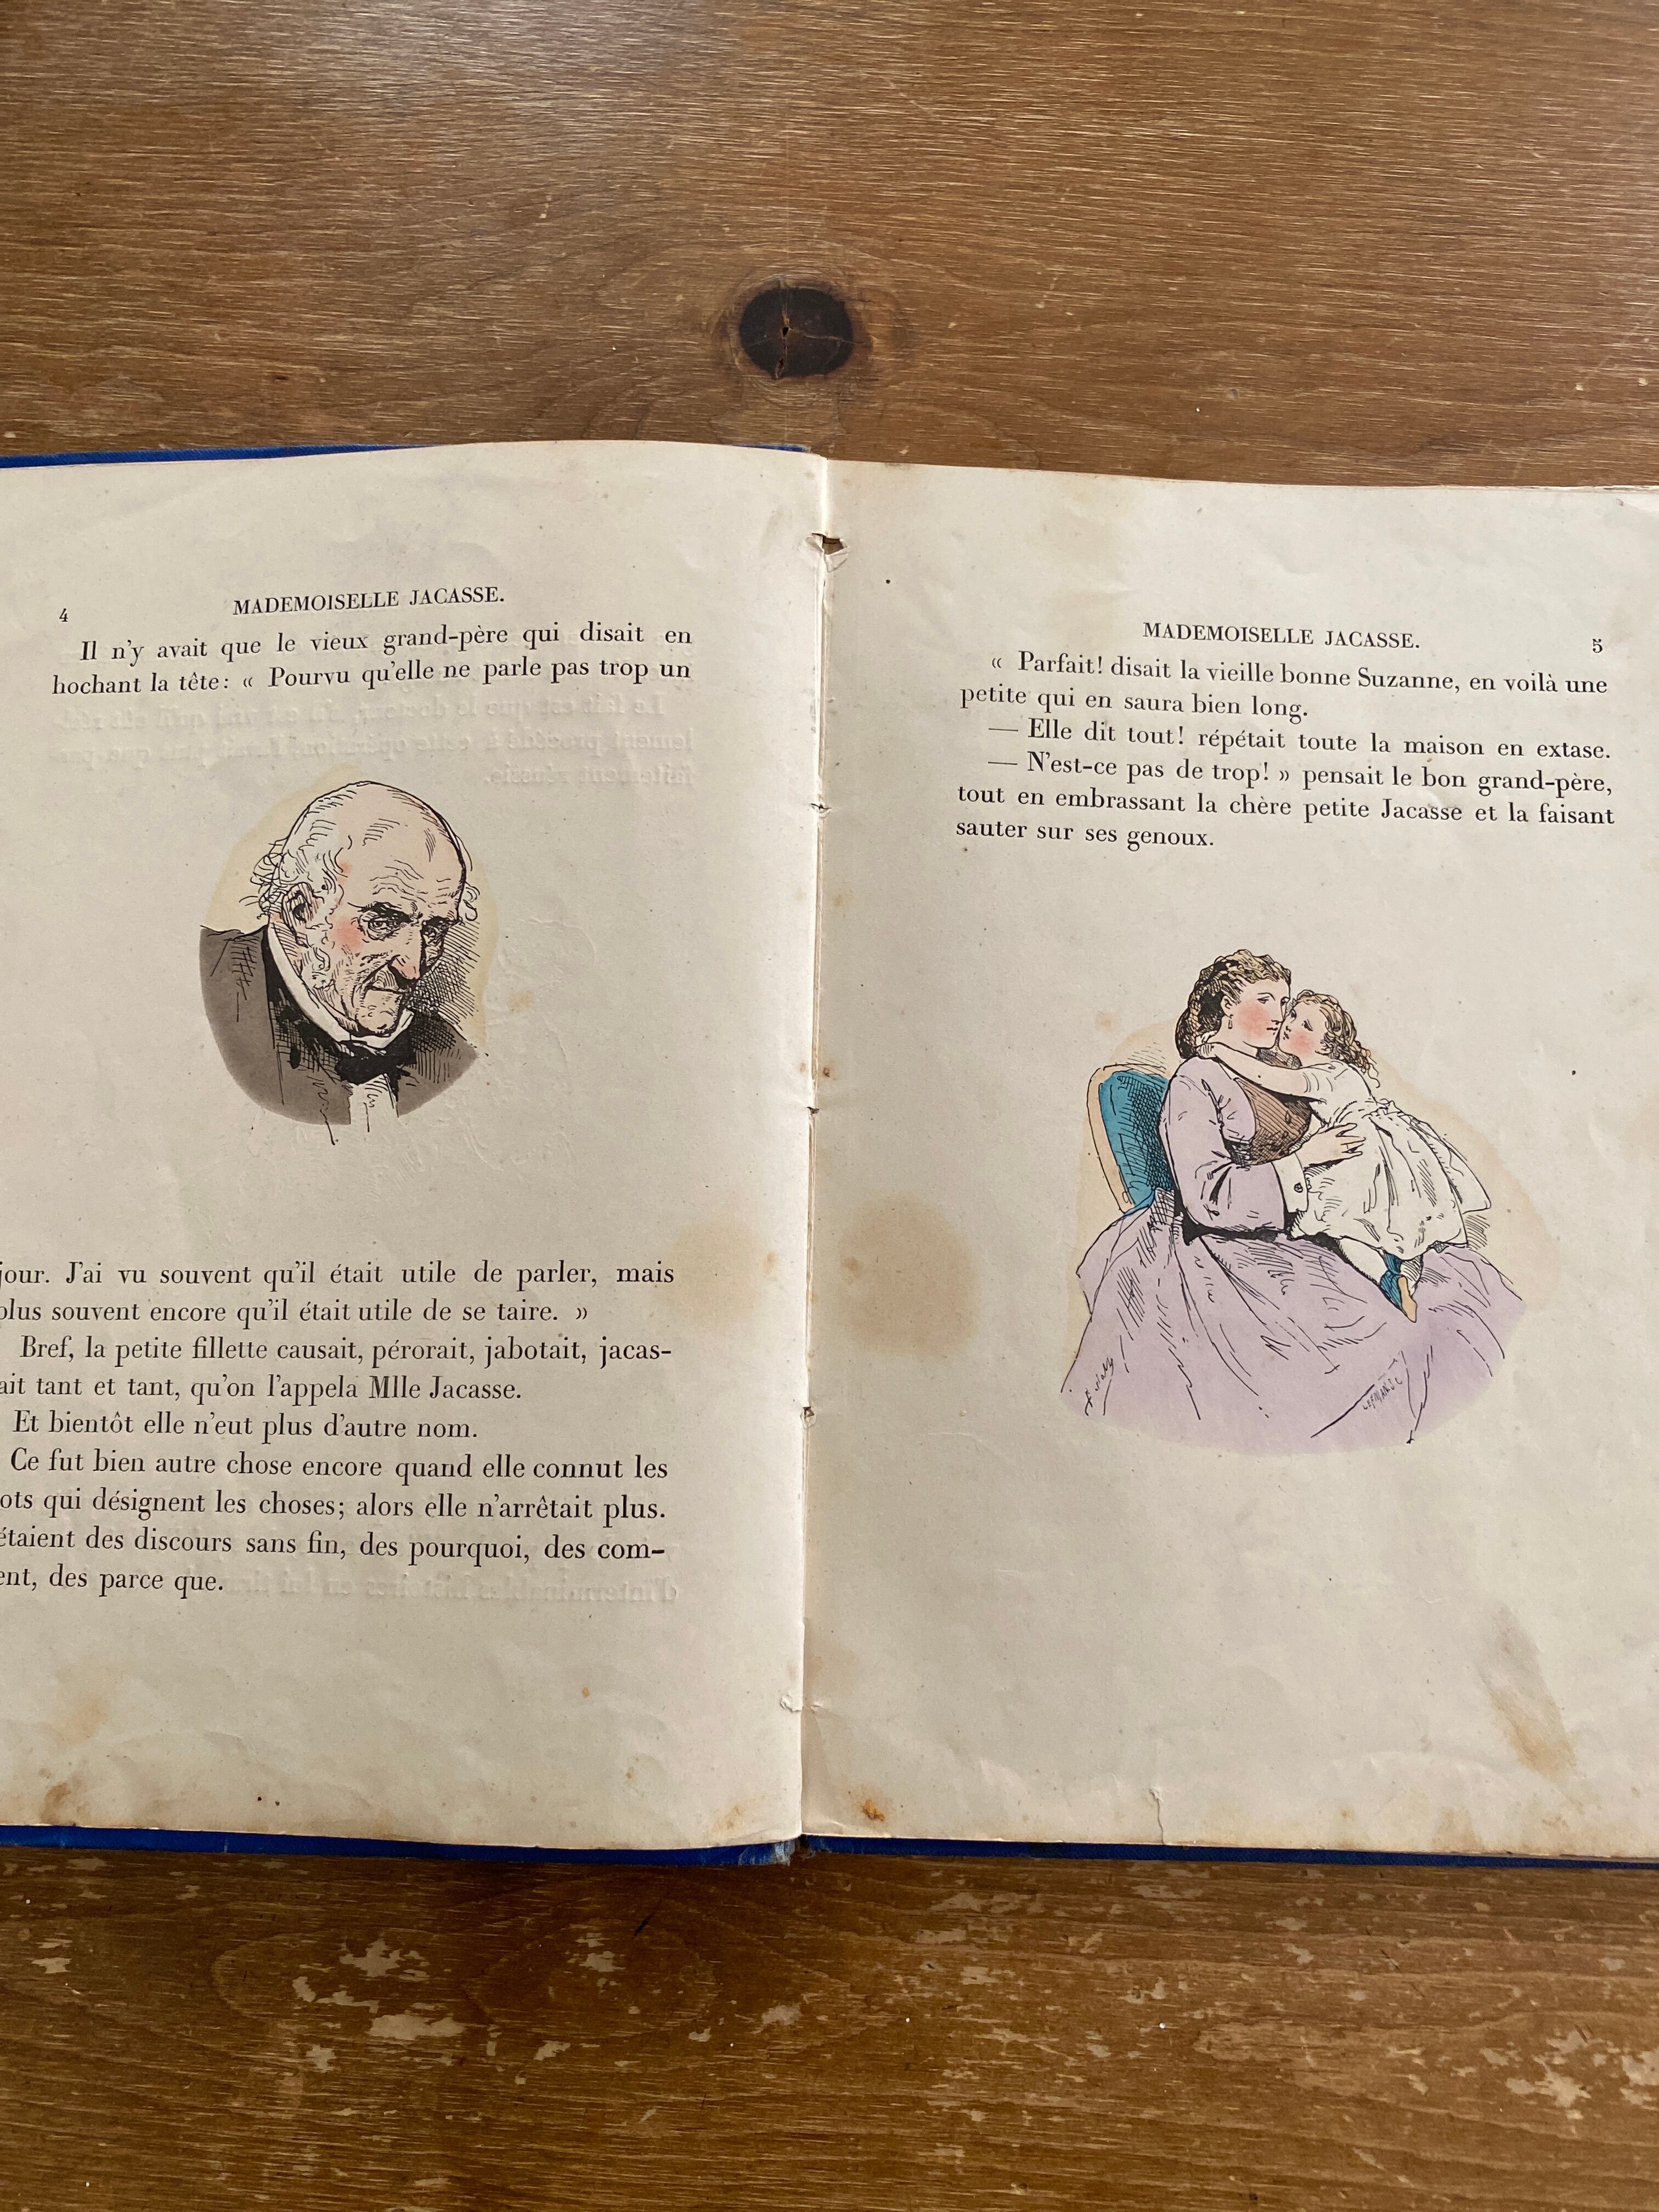 4
MADEMOISELLE JACASSE.
Il n'y avait que le vieux grand-père qui disait en
hochant la tête: « Pourvu qu'elle ne parle pas trop un
jour. J'ai vu souvent qu'il était utile de parler, mais
plus souvent encore qu'il était utile de se taire. »
Bref, la petite fillette causait, pérorait, jabotait, jacas-
ait tant et tant, qu'on l'appela Mlle Jacasse.
Et bientôt elle n'eut plus d'autre nom.
Ce fut bien autre chose encore quand elle connut les
ots qui désignent les choses; alors elle n'arrêtait plus.
étaient des discours sans fin, des pourquoi, des com-
ent, des parce que.
MADEMOISELLE JACASSE.
5
« Parfait! disait la vieille bonne Suzanne, en voilà une
petite qui en saura bien long.
— Elle dit tout! répétait toute la maison en extase.
— N'est-ce pas de trop! » pensait le bon grand-père,
tout en embrassant la chère petite Jacasse et la faisant
sauter sur ses genoux.